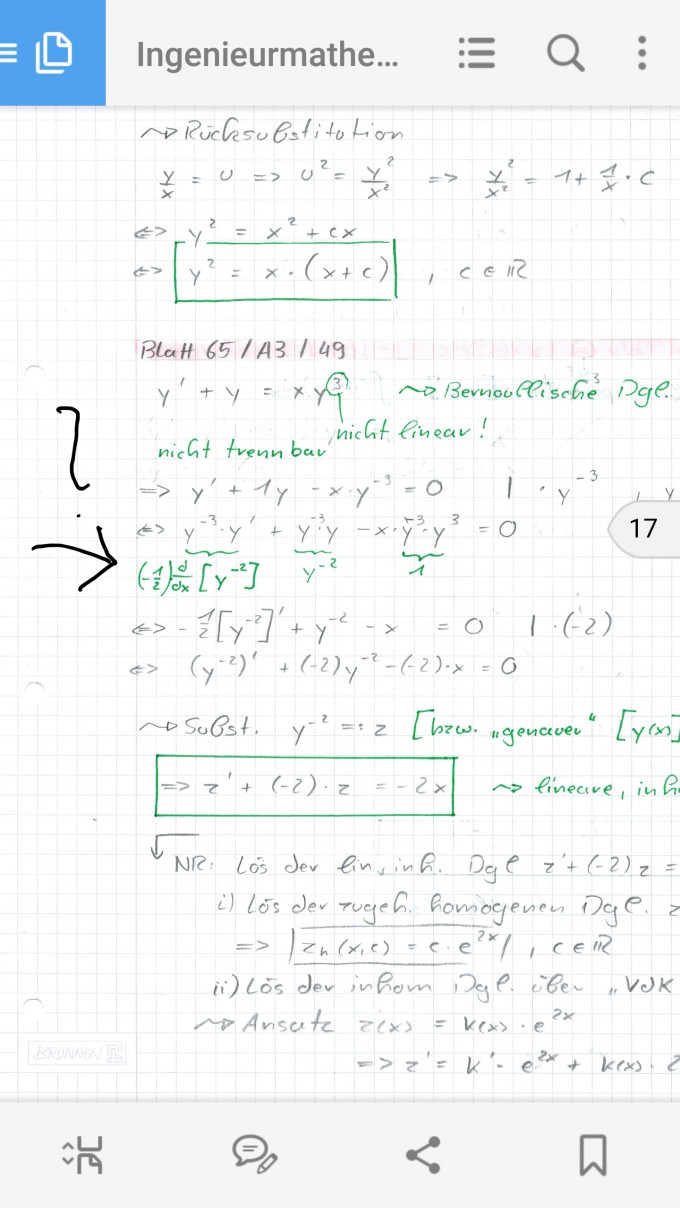 Ingenieurmathe...
~> Rücksubstitution
y/x = u => u² = y²/x² => y²/x² = 1 + 1/x · c
<=> y² = x² + cx
<=> y² = x · (x + c) , c ∈ ℝ
Blatt 65 / A3 / 49
y' + y = x y³ ~> Bernoullische Dgl.
nicht linear!
nicht trennbar
=> y' + 1y - x · y⁻³ = 0 | · y⁻³ , y
<=> y⁻³ · y' + y⁻³ y - x · y⁻³ · y³ = 0
17
(-1/2) d/dx [y⁻²] y⁻² 1
<=> -1/2 [y⁻²]' + y⁻² - x = 0 | · (-2)
<=> (y⁻²)' + (-2) y⁻² - (-2) · x = 0
~> Subst. y⁻² =: z [bzw. „genauer“ [y(x)]
=> z' + (-2) · z = -2x ~> lineare, inh
NR: Lös der lin, inh. Dgl z' + (-2) z =
i) Lös der zugeh. homogenen Dgl. z
=> z_h (x, c) = c · e²ˣ , c ∈ ℝ
ii) Lös der inhom Dgl. über „VdK
~> Ansatz z(x) = k(x) · e²ˣ
=> z' = k' · e²ˣ + k(x) · 2
BRUNNEN